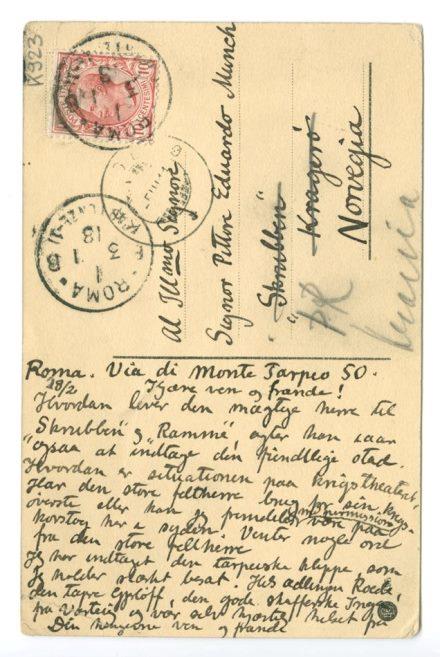 K323
ROMA
ROMA
1
3
13
Al Illmo Signore
Signor Pittore Eduardo Munch
"Skrubben"
Kragerö
Norvegia
Roma. Via di Monte Tarpeo 50.
28/2 Kjære ven og frænde!
Hvordan lever den mægtige herre til
"Skrubben" og "Ramme", agter han i aar
ogsaa at indtage den fiendtlige stad.
Hvordan er situationen paa krigstheatret,
Har den store feltherre brug for sin krigs-
øverste eller kan jeg fremdeles være paa
korstog her i syden. Venter nogle ord
fra den store feltherre
Jeg har indtaget den tarpeiske klippe som
jeg holder stærkt besat. Hils ædlingen Roede,
den tapre, den gode
fra og vær selv hjertelig hilset fra
Din hengivne ven og frænde